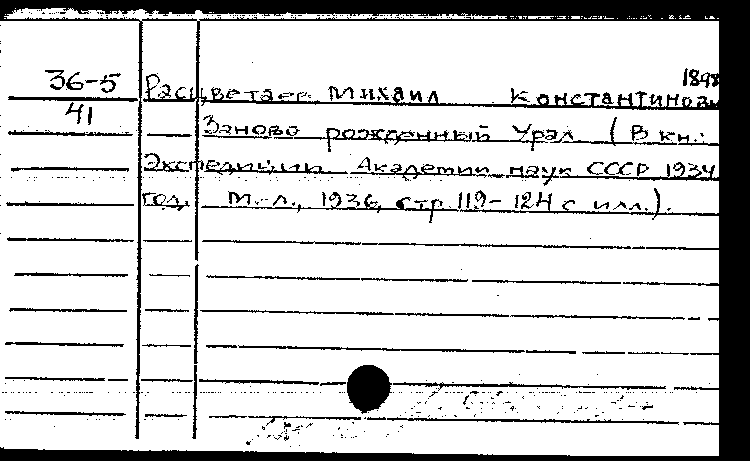 1898
36-5 Расцветаев Михаил Константинович
41 Заново рожденный Урал (В кн.:
Экспедиции Академии наук СССР 1934
год. М.-Л., 1936, стр. 119-124 с илл.).